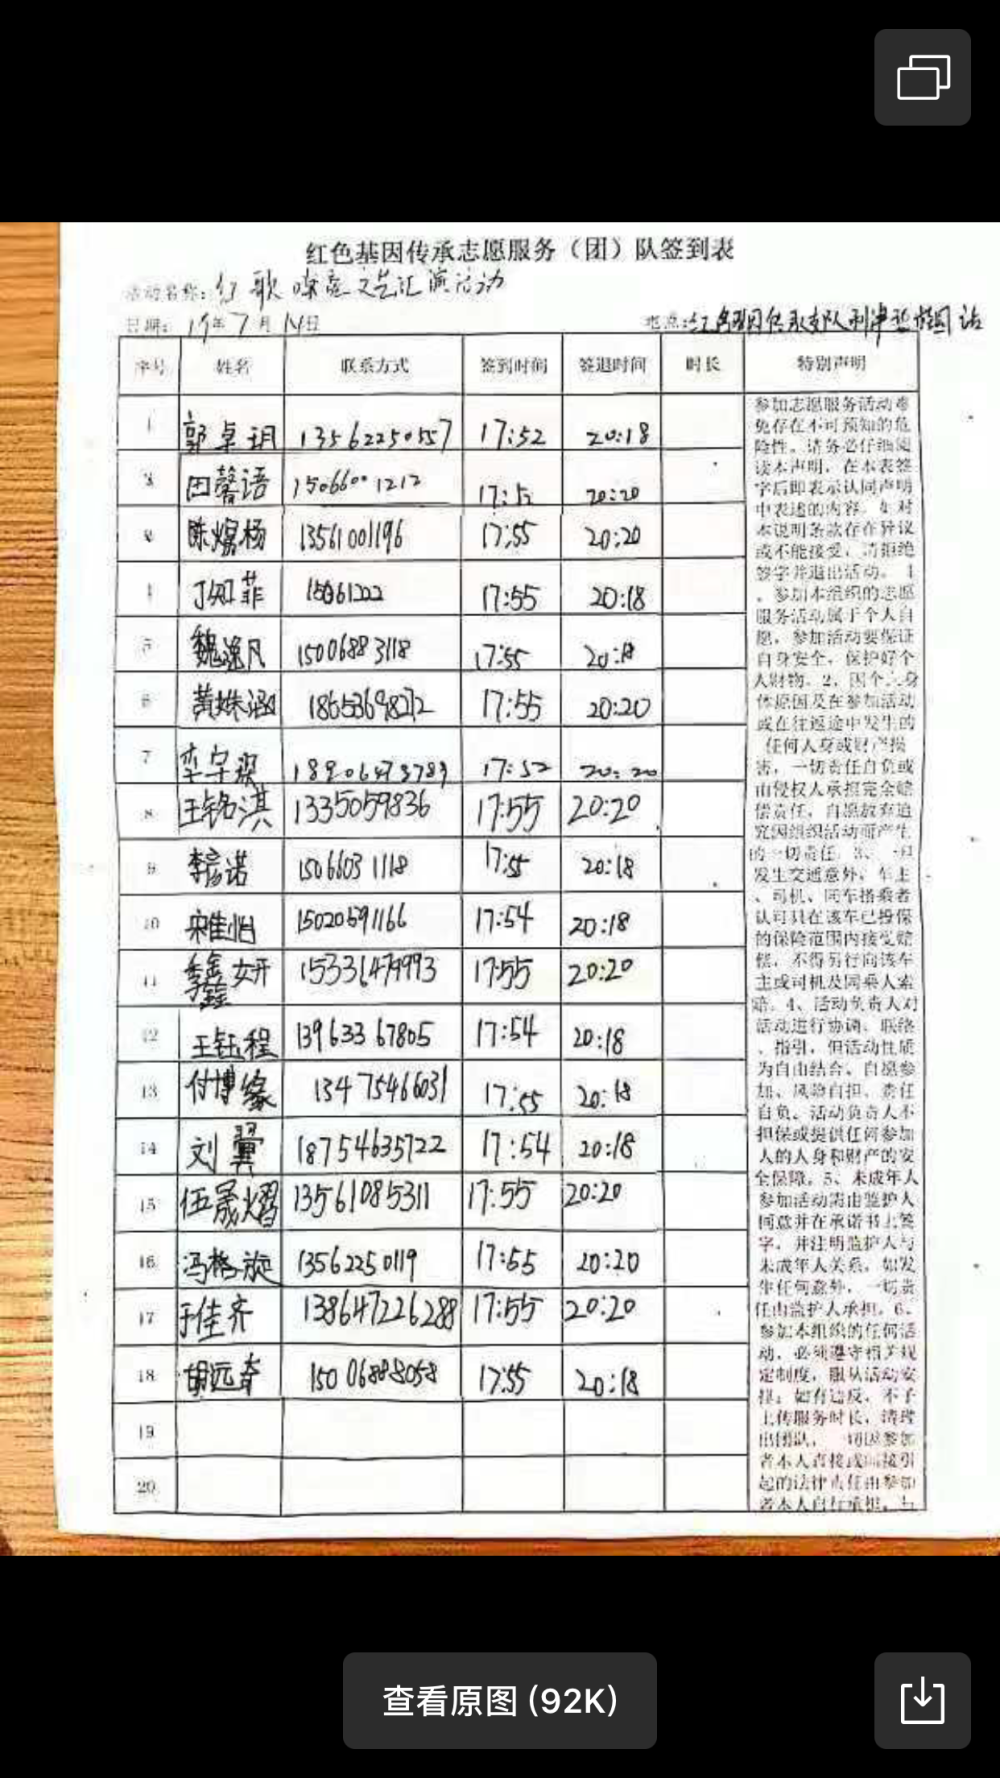 红色基因传承志愿服务（团）队签到表
活动名称：红歌嘹亮文艺汇演活动
日期：19年7月14日
序号 姓名 联系方式 签到时间 签退时间 时长 特别声明
1 郭卓玥 13562250557 17:52 20:18
田馨语 15066001212 20:20
13561001196 17:55 20:20
15061222 17:55 20:18
5 魏逸凡 15006883118 17:55
6 黄姝涵 18653698272 17:55 20:20
7 17:52 20:20
8 王铭淇 1335059836 17:55 20:20
9 李彦诺 15066031118 17:55 20:18
10 宋佳怡 15020591166 17:54 20:18
11 17:55 20:20
12 王钰程 13963367805 17:54 20:18
13 付博缘 13475466031 17:55 20:18
14 刘翼 18754635722 17:54 20:18
15 伍晟熠 13561085311 17:55 20:20
16 冯格旋 13562250119 17:55 20:20
17 于佳齐 138647226288 17:55 20:20
18 胡远奇 15006888058 17:55 20:18
19
20
参加志愿服务活动难
免存在不可预知的危
险性。请务必仔细阅
读本声明，在本表签
字后即表示认同声明
中表述的内容。如对
本说明条款存在异议
或不能接受，请拒绝
签字并退出活动。1
、参加本组织的志愿
服务活动属于个人自
愿，参加活动要保证
自身安全，保护好个
人财物。2、因个人身
体原因及在参加活动
或在往返途中发生的
任何人身或财产损
害，一切责任自负或
由侵权人承担完全赔
偿责任，自愿放弃追
究因组织活动而产生
的一切责任。3、一旦
发生交通意外，车主
、司机、同车搭乘者
认可只在该车已投保
的保险范围内接受赔
偿，不得另行向该车
主或司机及同乘人索
赔。4、活动负责人对
活动进行协调、联络
、指引，但活动性质
为自由结合、自愿参
加、风险自担、责任
自负。活动负责人不
担保或提供任何参加
人的人身和财产的安
全保障。5、未成年人
参加活动需由监护人
同意并在承诺书上签
字，并注明监护人与
未成年人关系，如发
生任何意外，一切责
任由监护人承担。6、
参加本组织的任何活
动，必须遵守相关规
定制度，服从活动安
排；如有违反，不予
上传服务时长，清理
出团队，一切因参加
者本人直接或间接引
起的法律责任由参加
者本人自行承担，与
查看原图 (92K)